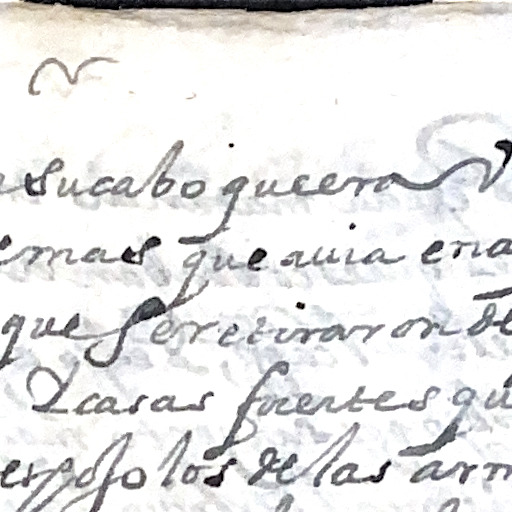 a su cabo que era
emas que auia en a
que se retiraron de
casas fuertes qu
los de las arm